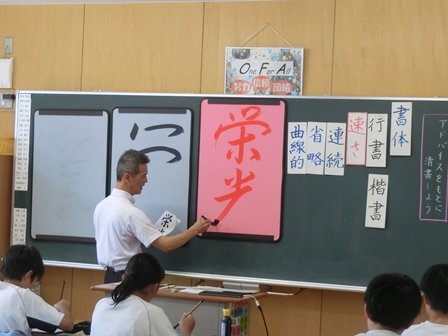 One For All
努力 信頼 団結
書体
行書
楷書
速さ
連続
省略
曲線的
アドバイスをもとに
清書しよう
栄光
栄